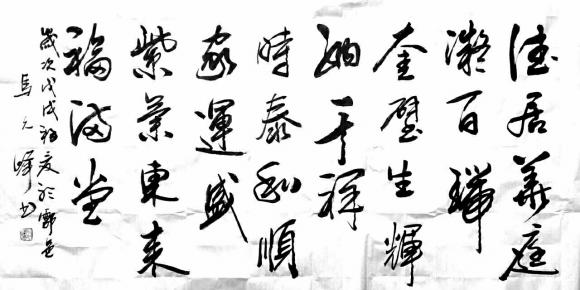 佳居華庭
凝百瑞
奎璧生輝
納千祥
時泰和順
家運盛
紫氣東來
福滿堂
歲次戊戌初夏於
馬元書